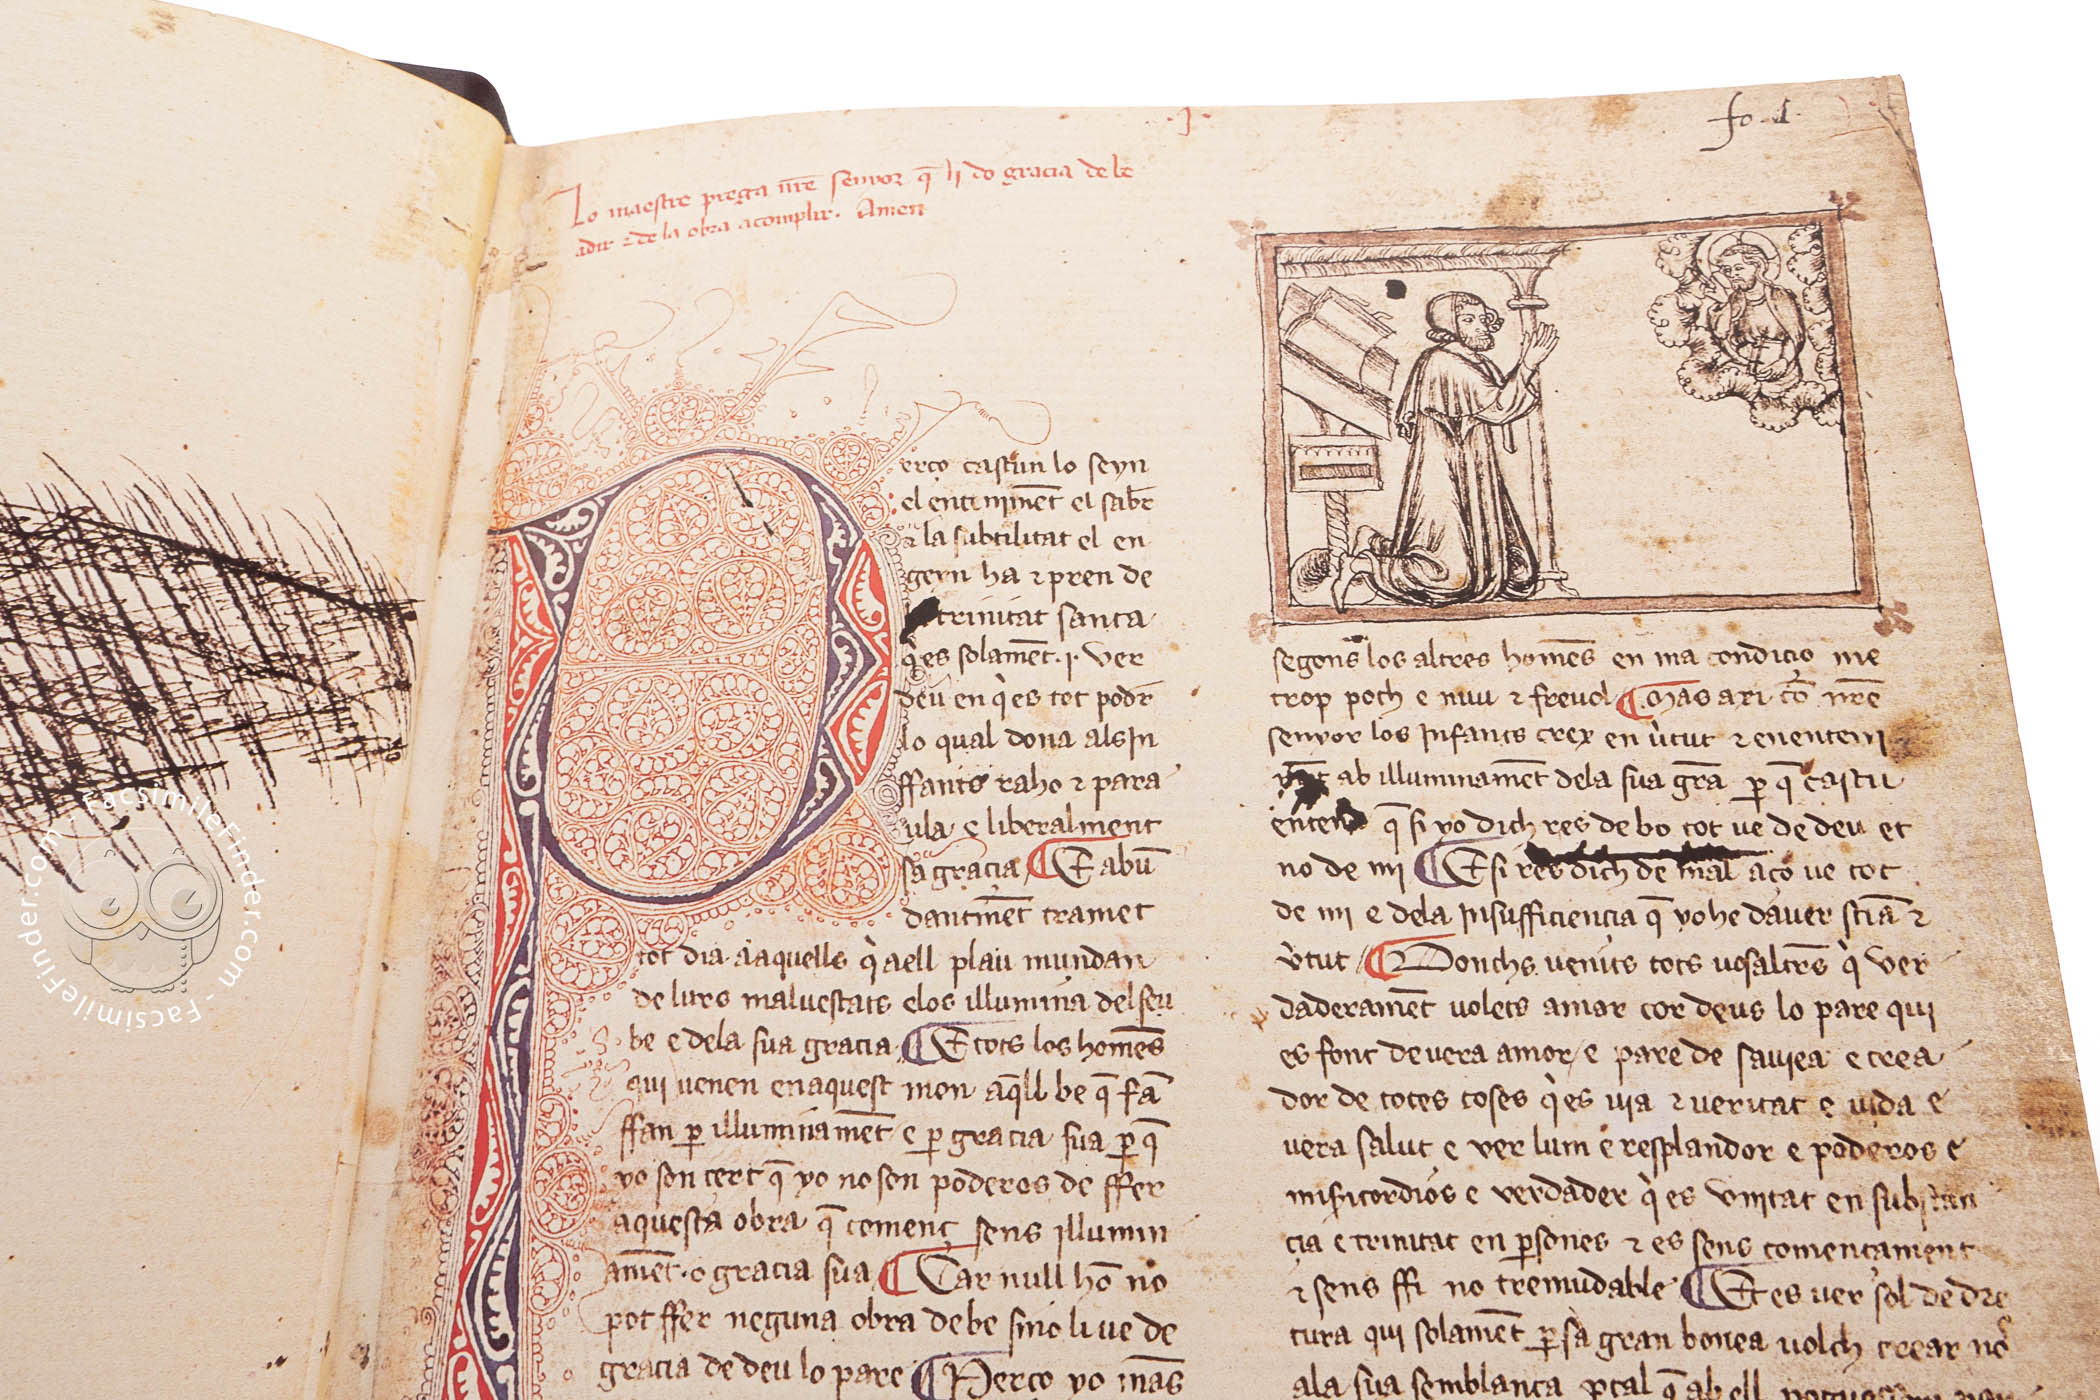 .I.
fo. 1.
Lo maestre prega nr̄e senyor q̄ li do gracia de be
adir ⁊ de la obra acomplir. Amen
Perço castun lo seyn
el entiniment el sab̄r
⁊ la subtilitat el en
geyn ha ⁊ pren de
trinitat santa
q̇ es solam̄et .i. ver
deu en q̇ es tot pod̄r
lo qual dona als In
ffants raho ⁊ para
ula e liberalment
sa gracia ¶ E abū
dantm̄et tramet
tot dia a aquells q̇ a ell plau mundan
de lurs maluestats e los illumina del seu
be e de la sua gracia ¶ E tots los hom̄es
qui uenen en aquest mon aq̄ll be q̄ fā
ffan p̱ illuminam̄et e p̱ gracia sua p̱ q̄
yo son cert q̄ yo no son poderos de ffer
aquesta obra q̄ començ sens illumin
am̄et o gracia sua ¶ Car null hō no
pot ffer neguna obra de be sino li ue de
gracia de deu lo pare ¶ Perço yo mas
segons los altres hom̄es en ma condicio me
trop poch e nuu ⁊ freuol ¶ Mas axi cō nr̄e
senyor los Infants crex en v̇tut ⁊ en enteni
ab illuminam̄et de la sua gr̄a p̱ q̄ castu
enten q̄ si yo dich res de bo tot ue de deu et
no de mi ¶ E si res dich de mal aço ue tot
de mi e de la Insufficiencia q̄ yo he dauer sciā ⁊
v̇tut ¶ Donchs venits tots uosaltr̄s q̇ ver
daderam̄et uolets amar cor deus lo pare qui
es font de uera amor e pare de sauiea e crea
dor de totes coses q̇ es uia ⁊ ueritat e uida e
uera salut e ver lum e resplandor e poderos e
misericordios e verdader q̇ es vnitat en substan
cia e trinitat en p̱sones ⁊ es sens comensament
⁊ sens ffi no tremudable ¶ Et es uer sol de dre
tura qui solam̄et p̱ sa gran bonea uolch crear nos
a la sua semblança p̱ tal q̄ ab ell
FacsimileFinder.com - FacsimileFinder.com -